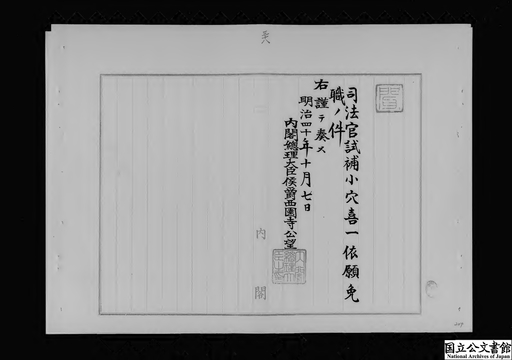 司法官試補小穴喜一依願免
職ノ件
右謹テ奏ス
明治四十年十月七日
内閣總理大臣侯爵西園寺公望
内閣
国立公文書館
National Archives of Japan